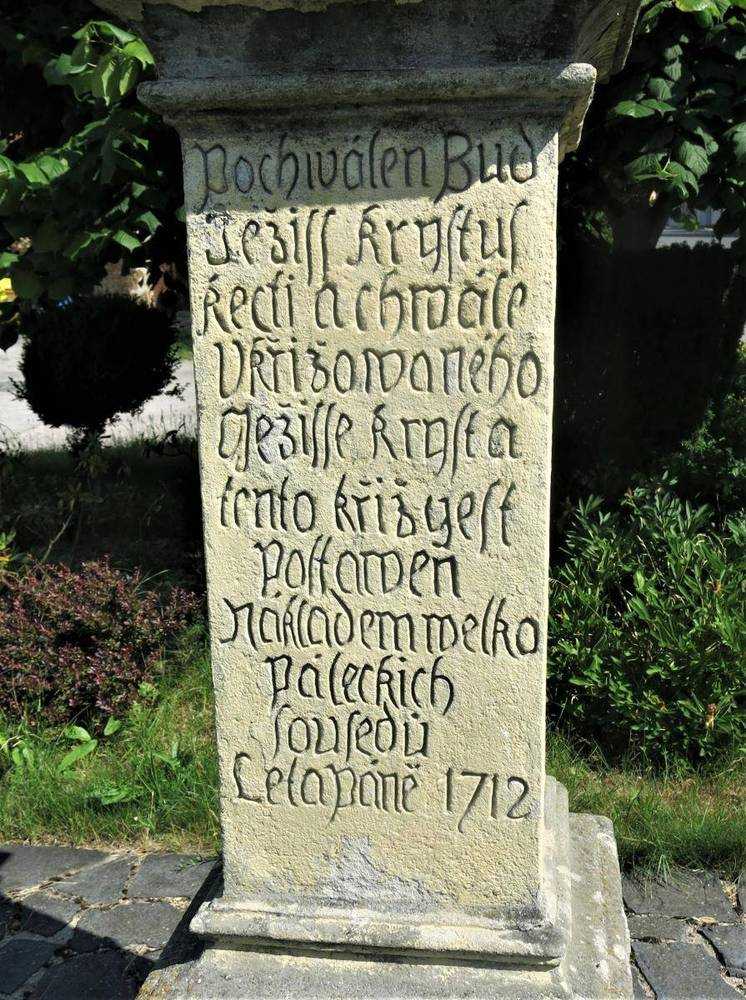 Pochwálen Bud
Ježiss Krystus
kecti a chwále
Vkřižowaného
Gežisse Krysta
tento křiž gest
Postawen
Nákladem welko
páleckich
sousedů
Letapáně 1712